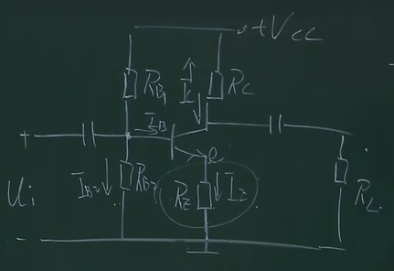 +VCC
RB1
IC
RC
+
IB
e
Ui
IB2
RB2
RE
RL
-